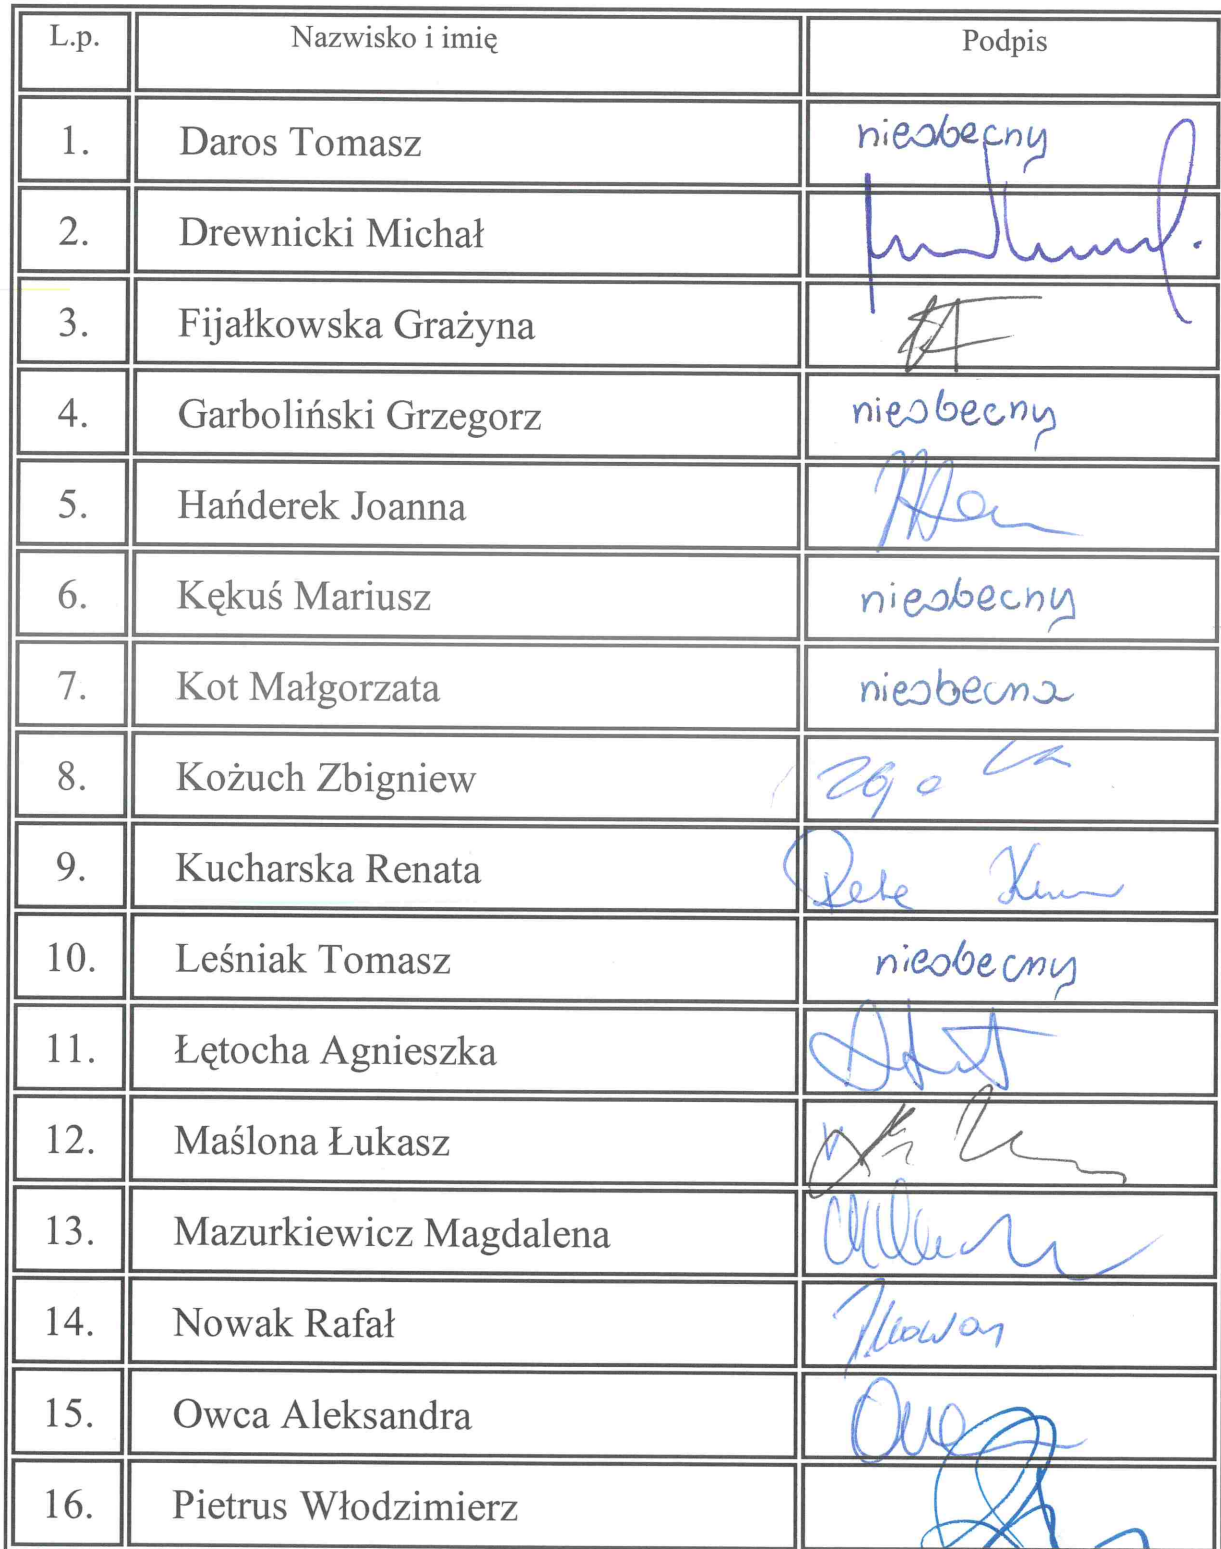 L.p. Nazwisko i imię Podpis
1. Daros Tomasz nieobecny
2. Drewnicki Michał
3. Fijałkowska Grażyna
4. Garboliński Grzegorz nieobecny
5. Hańderek Joanna
6. Kękuś Mariusz nieobecny
7. Kot Małgorzata nieobecna
8. Kożuch Zbigniew
9. Kucharska Renata
10. Leśniak Tomasz nieobecny
11. Łętocha Agnieszka
12. Maślona Łukasz
13. Mazurkiewicz Magdalena
14. Nowak Rafał
15. Owca Aleksandra
16. Pietrus Włodzimierz